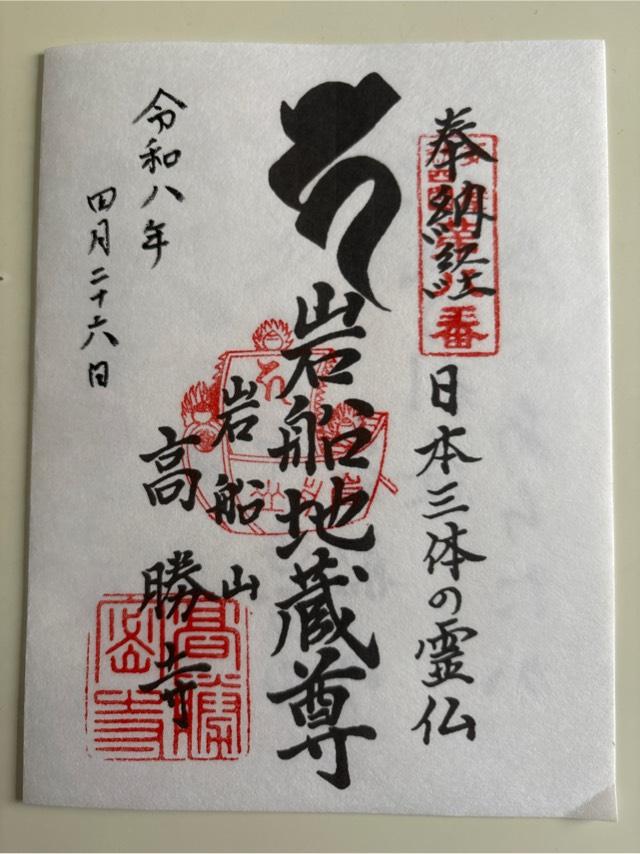 奉納経
日本三体の霊仏
岩船地蔵尊
岩船山
高勝寺
令和八年
四月二十六日